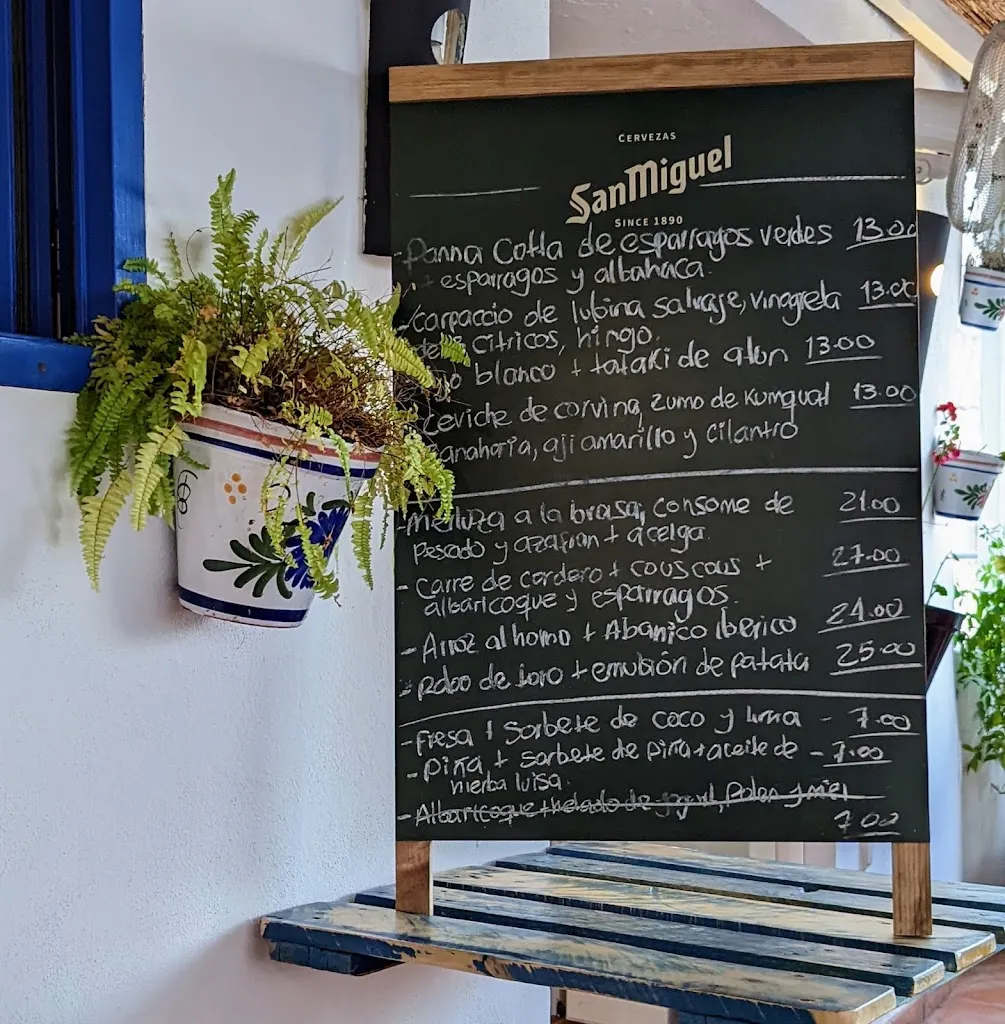 CERVEZAS
SanMiguel
SINCE 1890
-Panna Cotta de esparragos verdes 13.00
+ esparragos y albahaca.
carpaccio de lubina salvaje, vinagreta 13.00
de citricos, hinojo.
blanco + tataki de atun 13.00
ceviche de corvina, zumo de Kumquat 13.00
zanahoria, aji amarillo y cilantro
-merluza a la brasa, consome de 21.00
pescado y azafran + acelga.
- carre de cordero + couscous + 27.00
albaricoque y esparragos.
- Arroz al horno + Abanico iberico 24.00
- Rabo de toro + emulsión de patata 25.00
- Fresa / Sorbete de coco y lima - 7.00
- piña + sorbete de piña + aceite de - 7.00
hierba luisa.
- Albaricoque + helado de yogurt, Polen y miel
7.00